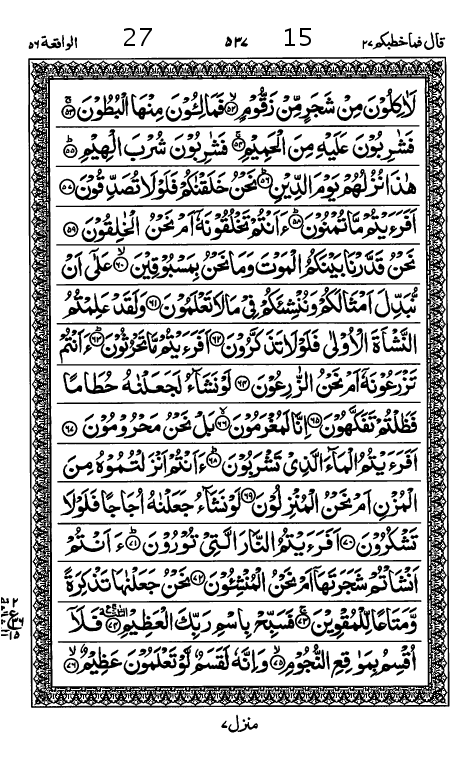 قال فما خطبكم ٢٧ 15 ٥٣٧ 27 الواقعة ٥٦
لَاٰكِلُوْنَ مِنْ شَجَرٍ مِّنْ زَقُّوْمٍ ۙ﴿٥٢﴾ فَمَالِـُٔوْنَ مِنْهَا الْبُطُوْنَ ۚ﴿٥٣﴾
فَشٰرِبُوْنَ عَلَيْهِ مِنَ الْحَمِيْمِ ۚ﴿٥٤﴾ فَشٰرِبُوْنَ شُرْبَ الْهِيْمِ ؕ﴿٥٥﴾
هٰذَا نُزُلُهُمْ يَوْمَ الدِّيْنِ ؕ﴿٥٦﴾ نَحْنُ خَلَقْنٰكُمْ فَلَوْلَا تُصَدِّقُوْنَ ﴿٥٧﴾
اَفَرَءَيْتُمْ مَّا تُمْنُوْنَ ؕ﴿٥٨﴾ ءَاَنْتُمْ تَخْلُقُوْنَهٗۤ اَمْ نَحْنُ الْخٰلِقُوْنَ ﴿٥٩﴾
نَحْنُ قَدَّرْنَا بَيْنَكُمُ الْمَوْتَ وَمَا نَحْنُ بِمَسْبُوْقِيْنَ ۙ﴿٦٠﴾ عَلٰۤى اَنْ
نُّبَدِّلَ اَمْثَالَكُمْ وَنُنْشِئَكُمْ فِيْ مَا لَا تَعْلَمُوْنَ ﴿٦١﴾ وَلَقَدْ عَلِمْتُمُ
النَّشْاَةَ الْاُوْلٰى فَلَوْلَا تَذَكَّرُوْنَ ﴿٦٢﴾ اَفَرَءَيْتُمْ مَّا تَحْرُثُوْنَ ؕ﴿٦٣﴾ ءَاَنْتُمْ
تَزْرَعُوْنَهٗۤ اَمْ نَحْنُ الزّٰرِعُوْنَ ﴿٦٤﴾ لَوْ نَشَآءُ لَجَعَلْنٰهُ حُطَامًا
فَظَلْتُمْ تَفَكَّهُوْنَ ﴿٦٥﴾ اِنَّا لَمُغْرَمُوْنَ ۙ﴿٦٦﴾ بَلْ نَحْنُ مَحْرُوْمُوْنَ ﴿٦٧﴾
اَفَرَءَيْتُمُ الْمَآءَ الَّذِيْ تَشْرَبُوْنَ ؕ﴿٦٨﴾ ءَاَنْتُمْ اَنْزَلْتُمُوْهُ مِنَ
الْمُزْنِ اَمْ نَحْنُ الْمُنْزِلُوْنَ ﴿٦٩﴾ لَوْ نَشَآءُ جَعَلْنٰهُ اُجَاجًا فَلَوْلَا
تَشْكُرُوْنَ ﴿٧٠﴾ اَفَرَءَيْتُمُ النَّارَ الَّتِيْ تُوْرُوْنَ ؕ﴿٧١﴾ ءَاَنْتُمْ
اَنْشَاْتُمْ شَجَرَتَهَاۤ اَمْ نَحْنُ الْمُنْشِـُٔوْنَ ﴿٧٢﴾ نَحْنُ جَعَلْنٰهَا تَذْكِرَةً
وَّمَتَاعًا لِّلْمُقْوِيْنَ ۚ﴿٧٣﴾ فَسَبِّحْ بِاسْمِ رَبِّكَ الْعَظِيْمِ ﴿٧٤﴾ فَلَاۤ
اُقْسِمُ بِمَوٰقِعِ النُّجُوْمِ ۙ﴿٧٥﴾ وَاِنَّهٗ لَقَسَمٌ لَّوْ تَعْلَمُوْنَ عَظِيْمٌ ۙ﴿٧٦﴾
منزل ٧